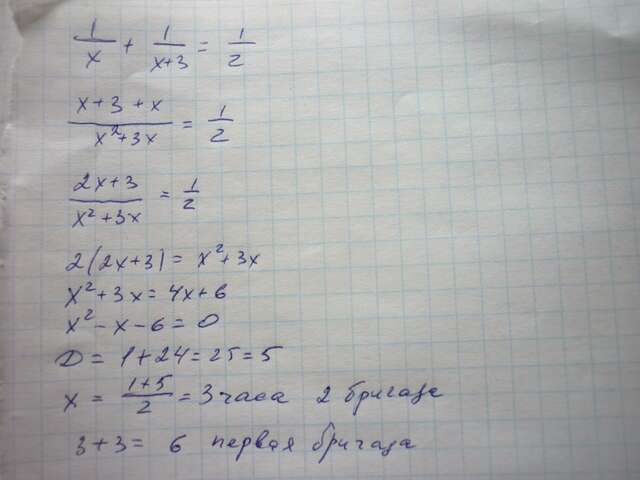 1/x + 1/(x+3) = 1/2
(x+3+x)/(x²+3x) = 1/2
(2x+3)/(x²+3x) = 1/2
2(2x+3) = x²+3x
x²+3x = 4x+6
x²-x-6=0
D = 1+24=25=5
x = (1+5)/2 = 3 часа 2 бригаде
3+3= 6 первая бригада